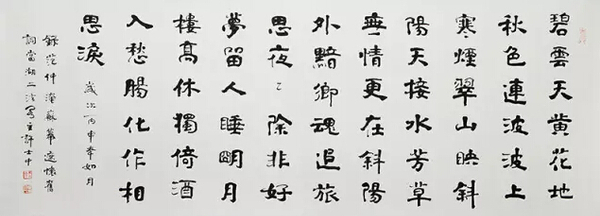 碧雲天黄花地
秋色連波波上
寒煙翠山映斜
陽天接水芳草
無情更在斜陽
外黯鄉魂追旅
思夜々除非好
夢留人睡明月
樓高休獨倚酒
入愁腸化作相
思淚
歲次丙申如月
錄范仲淹蘇幕遮懷舊
詞當湖主許士中